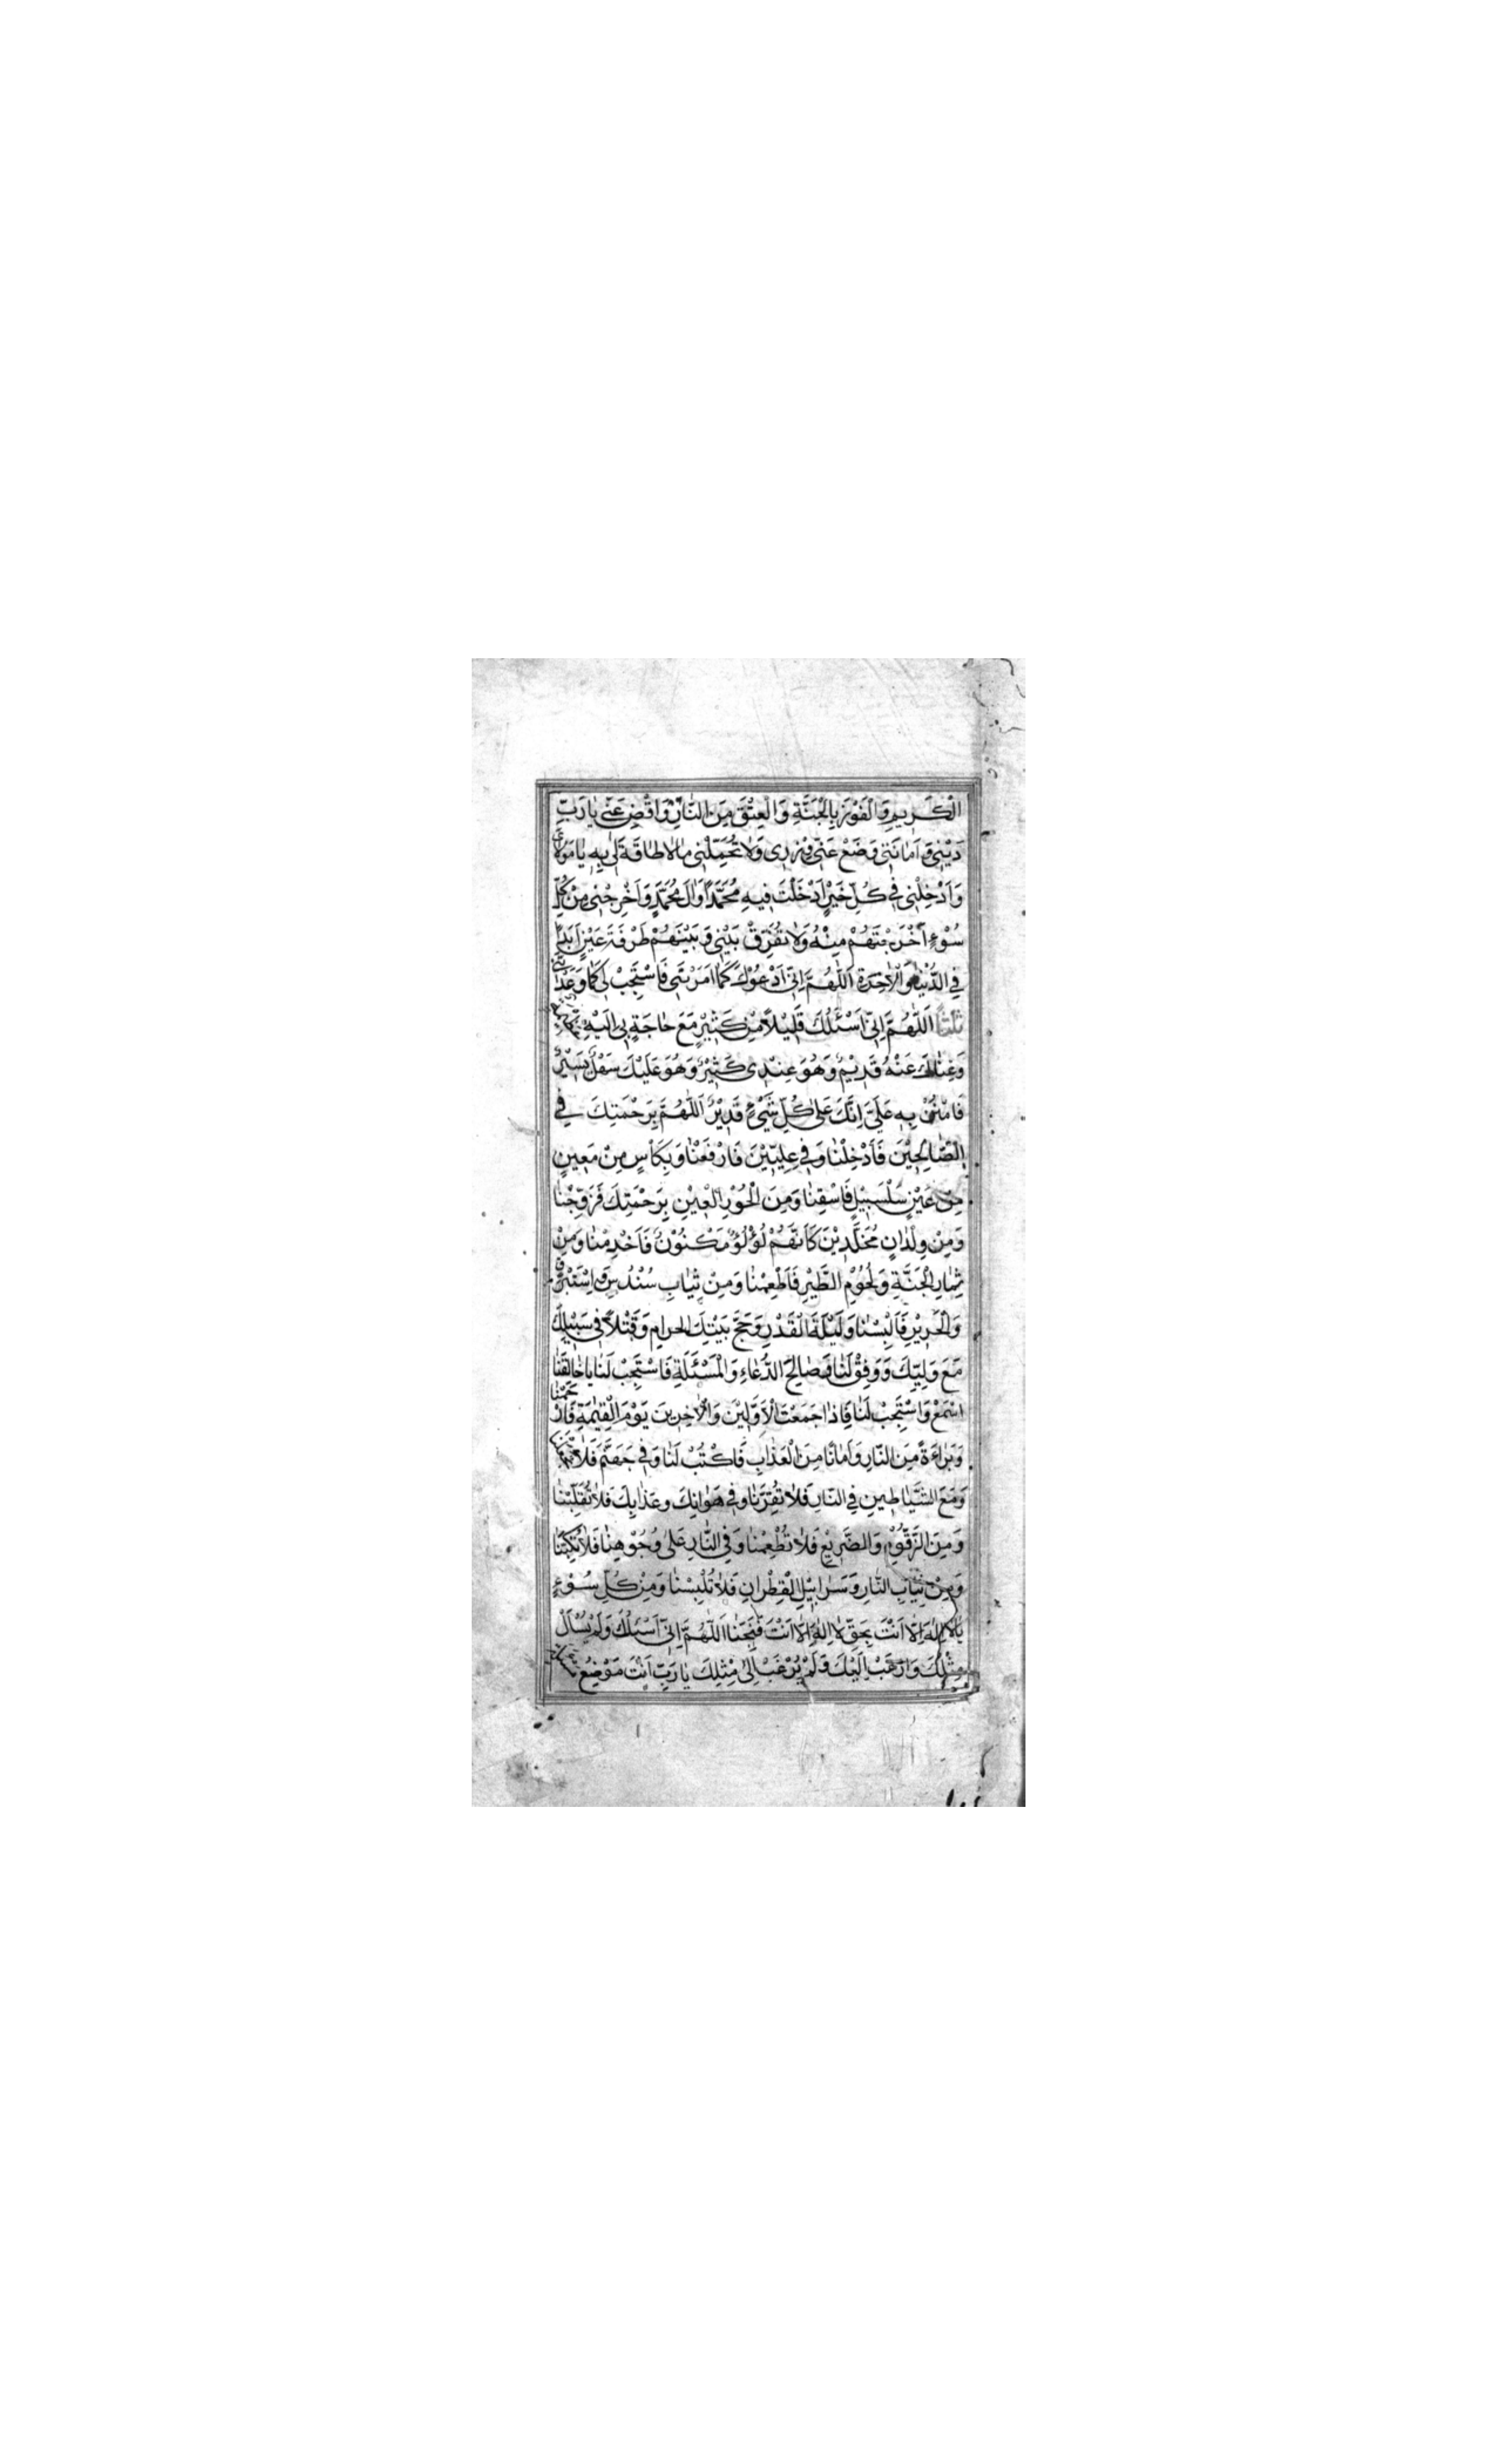 الْكَرِيمِ وَالْفَوْزَ بِالْجَنَّةِ وَالْعِتْقَ مِنَ النَّارِ وَاقْضِ عَنّي يَا رَبِّ
دَيْنِي وَ اَمَانَتِي وَضَعْ عَنّي وِزْرِي وَلَا تُحَمِّلْنِي مَا لَا طَاقَةَ لِي بِهِ يَا مَوْلَايَ
وَاَدْخِلْنِي فِي كُلِّ خَيْرٍ اَدْخَلْتَ فِيهِ مُحَمَّدًا وَالَ مُحَمَّدٍ وَاَخْرِجْنِي مِنْ كُلِّ
سُوْءٍ اَخْرَجْتَهُمْ مِنْهُ وَلَا تُفَرِّقْ بَيْنِي وَبَيْنَهُمْ طَرْفَةَ عَيْنٍ اَبَدًا
فِي الدُّنْيَا وَالْاٰخِرَةِ اَللّٰهُمَّ اِنّي اَدْعُوْكَ كَمَا اَمَرْتَنِي فَاسْتَجِبْ لِي كَمَا وَعَدْتَنِي
ثلثا اَللّٰهُمَّ اِنّي اَسْئَلُكَ قَلِيْلًا مِنْ كَثِيْرٍ مَعَ حَاجَةٍ بِي اِلَيْهِ
وَغِنَاكَ عَنْهُ قَدِيْمٌ وَهُوَ عِنْدِي كَثِيْرٌ وَهُوَ عَلَيْكَ سَهْلٌ يَسِيْرٌ
فَامْنُنْ بِهِ عَلَيَّ اِنَّكَ عَلٰى كُلِّ شَيْءٍ قَدِيْرٌ اَللّٰهُمَّ بِرَحْمَتِكَ فِي
الصَّالِحِيْنَ فَاَدْخِلْنَا وَفِي عِلِّيّيْنَ فَارْفَعْنَا وَبِكَاْسٍ مِنْ مَعِينٍ
مِنْ عَيْنٍ سَلْسَبِيْلٍ فَاسْقِنَا وَمِنَ الْحُوْرِ الْعِيْنِ بِرَحْمَتِكَ فَزَوِّجْنَا
وَمِنْ وِلْدَانٍ مُخَلَّدِيْنَ كَاَنَّهُمْ لُؤْلُؤٌ مَكْنُوْنٌ فَاَخْدِمْنَا وَمِنْ
ثِمَارِ الْجَنَّةِ وَلُحُوْمِ الطَّيْرِ فَاَطْعِمْنَا وَمِنْ ثِيَابِ سُنْدُسٍ وَ اِسْتَبْرَقٍ
وَالْحَرِيْرِ فَاَلْبِسْنَا وَلَيْلَةَ الْقَدْرِ وَحَجَّ بَيْتِكَ الْحَرَامِ وَ قَتْلًا فِي سَبِيْلِكَ
مَعَ وَلِيِّكَ وَ وَفِّقْ لَنَا وَصَالِحَ الدُّعَاءِ وَالْمَسْئَلَةِ فَاسْتَجِبْ لَنَا يَا خَالِقَنَا
اسْمَعْ وَاسْتَجِبْ لَنَا فَاِذَا جَمَعْتَ الْاَوَّلِيْنَ وَالْاٰخِرِينَ يَوْمَ الْقِيٰمَةِ فَارْحَمْنَا
وَبَرَاءَةً مِنَ النَّارِ وَاَمَانًا مِنَ الْعَذَابِ فَاكْتُبْ لَنَا وَفِي جَهَنَّمَ فَلَا
وَمَعَ الشَّيَاطِينِ فِي النَّارِ فَلَا تُقِرَّنَا وَفِي هَوَانِكَ وَعَذَابِكَ فَلَا تُقَلِّبْنَا
وَمِنَ الزَّقُّوْمِ وَالضَّرِيْعِ فَلَا تُطْعِمْنَا وَفِي النَّارِ عَلٰى وُجُوْهِنَا فَلَا تَكُبَّنَا
وَمِنْ ثِيَابِ النَّارِ وَ سَرَابِيْلِ الْقَطِرَانِ فَلَا تُلْبِسْنَا وَمِنْ كُلِّ سُوْءٍ
يَا لَا اِلٰهَ اِلَّا اَنْتَ بِحَقِّ لَا اِلٰهَ اِلَّا اَنْتَ فَنَجِّنَا اَللّٰهُمَّ اِنّي اَسْئَلُكَ وَلَمْ يُسْاَلْ
مِثْلُكَ وَاَرْغَبُ اِلَيْكَ وَلَمْ يُرْغَبْ اِلٰى مِثْلِكَ يَا رَبِّ اَنْتَ مَوْضِعُ